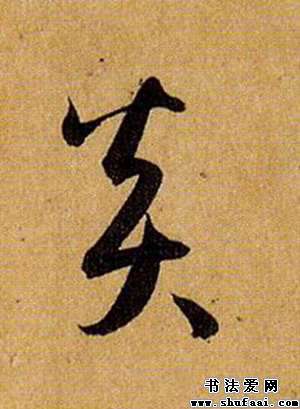 炎
书法爱网
www.shufaai.com